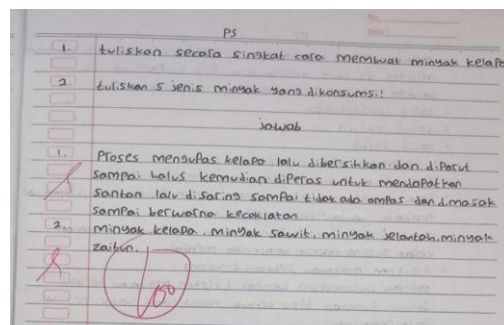 PS
1. tuliskan secara singkat cara membuat minyak kelapa
2. tuliskan 5 jenis minyak yang dikonsumsi!
jawab
1. Proses mengupas kelapa lalu dibersihkan dan diparut
sampai halus kemudian diperas untuk mendapatkan
santan lalu disaring sampai tidak ada ampas dan dimasak
sampai berwarna kecoklatan
2. minyak kelapa, minyak sawit, minyak jelantah, minyak
zaitun.
100